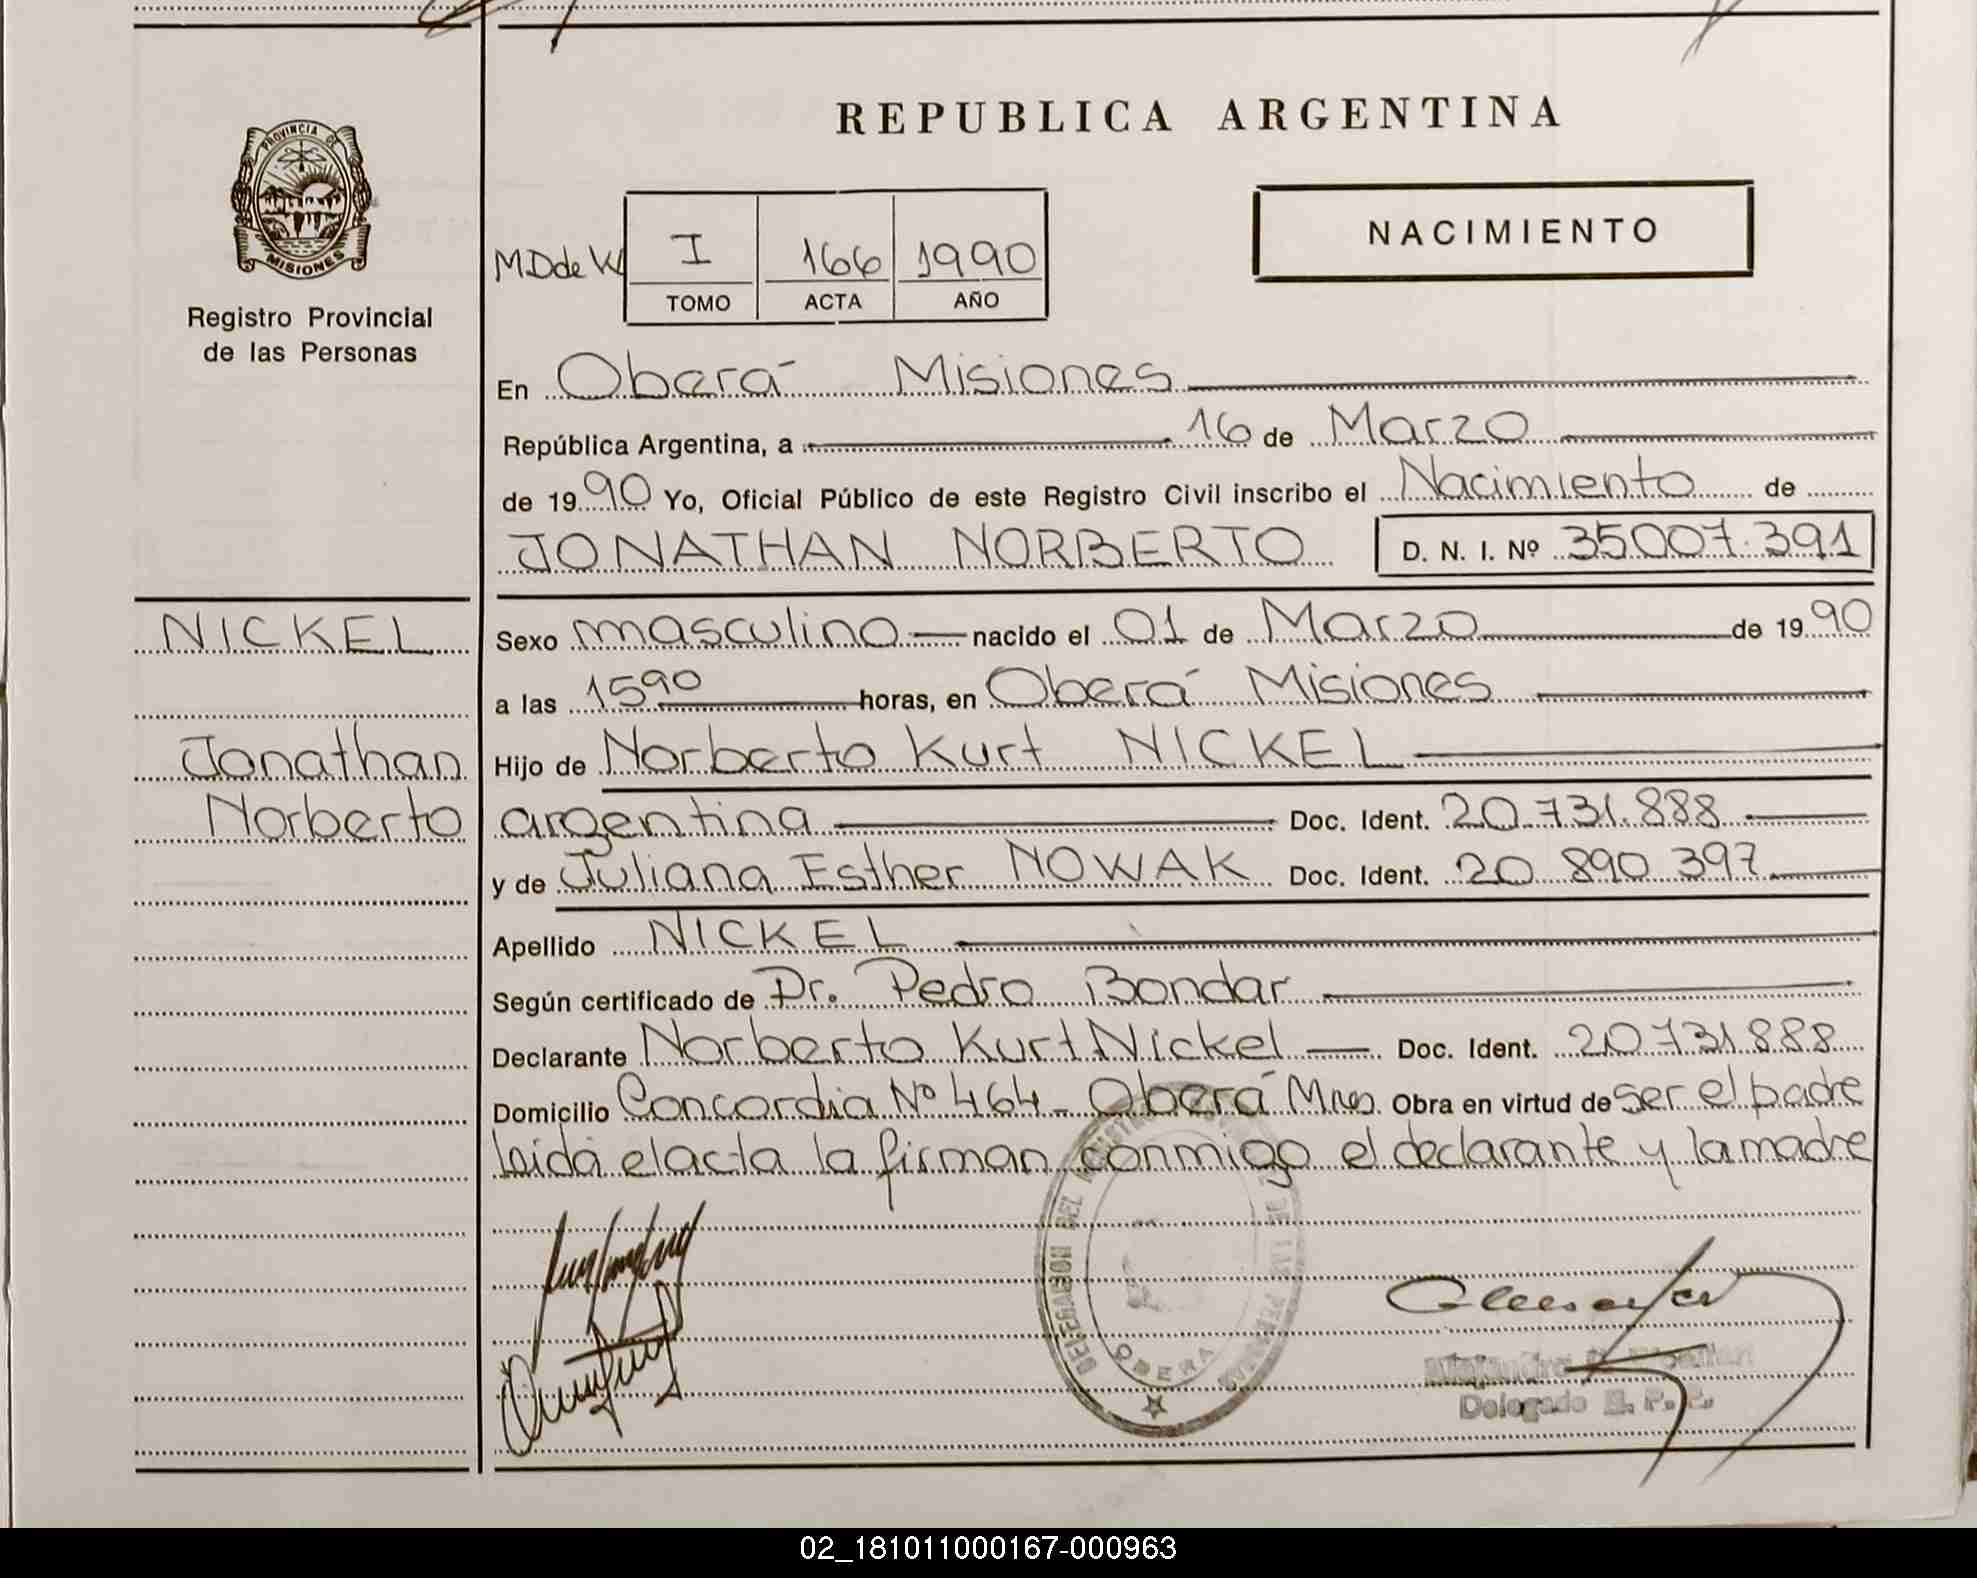 REPUBLICA ARGENTINA
PROVINCIA DE
MISIONES
Registro Provincial
de las Personas
NACIMIENTO
MDdeK I 166 1990
TOMO ACTA AÑO
En Oberá Misiones
República Argentina, a 16 de Marzo
de 1990 Yo, Oficial Público de este Registro Civil inscribo el Nacimiento de
JONATHAN NORBERTO D. N. I. Nº 35.007.391
NICKEL
Jonathan
Norberto
Sexo masculino nacido el 01 de Marzo de 1990
a las 1590 horas, en Oberá Misiones
Hijo de Norberto Kurt NICKEL
argentina Doc. Ident. 20.731.888
y de Juliana Esther NOWAK Doc. Ident. 20 890 397
Apellido NICKEL
Según certificado de Dr. Pedro Bondar
Declarante Norberto Kurt Nickel Doc. Ident. 20731888
Domicilio Concordia Nº 464 - Oberá Mnes. Obra en virtud de ser el padre
leida el acta la firman conmigo el declarante y la madre
OBERA
Delegado R. P. P.
02_181011000167-000963